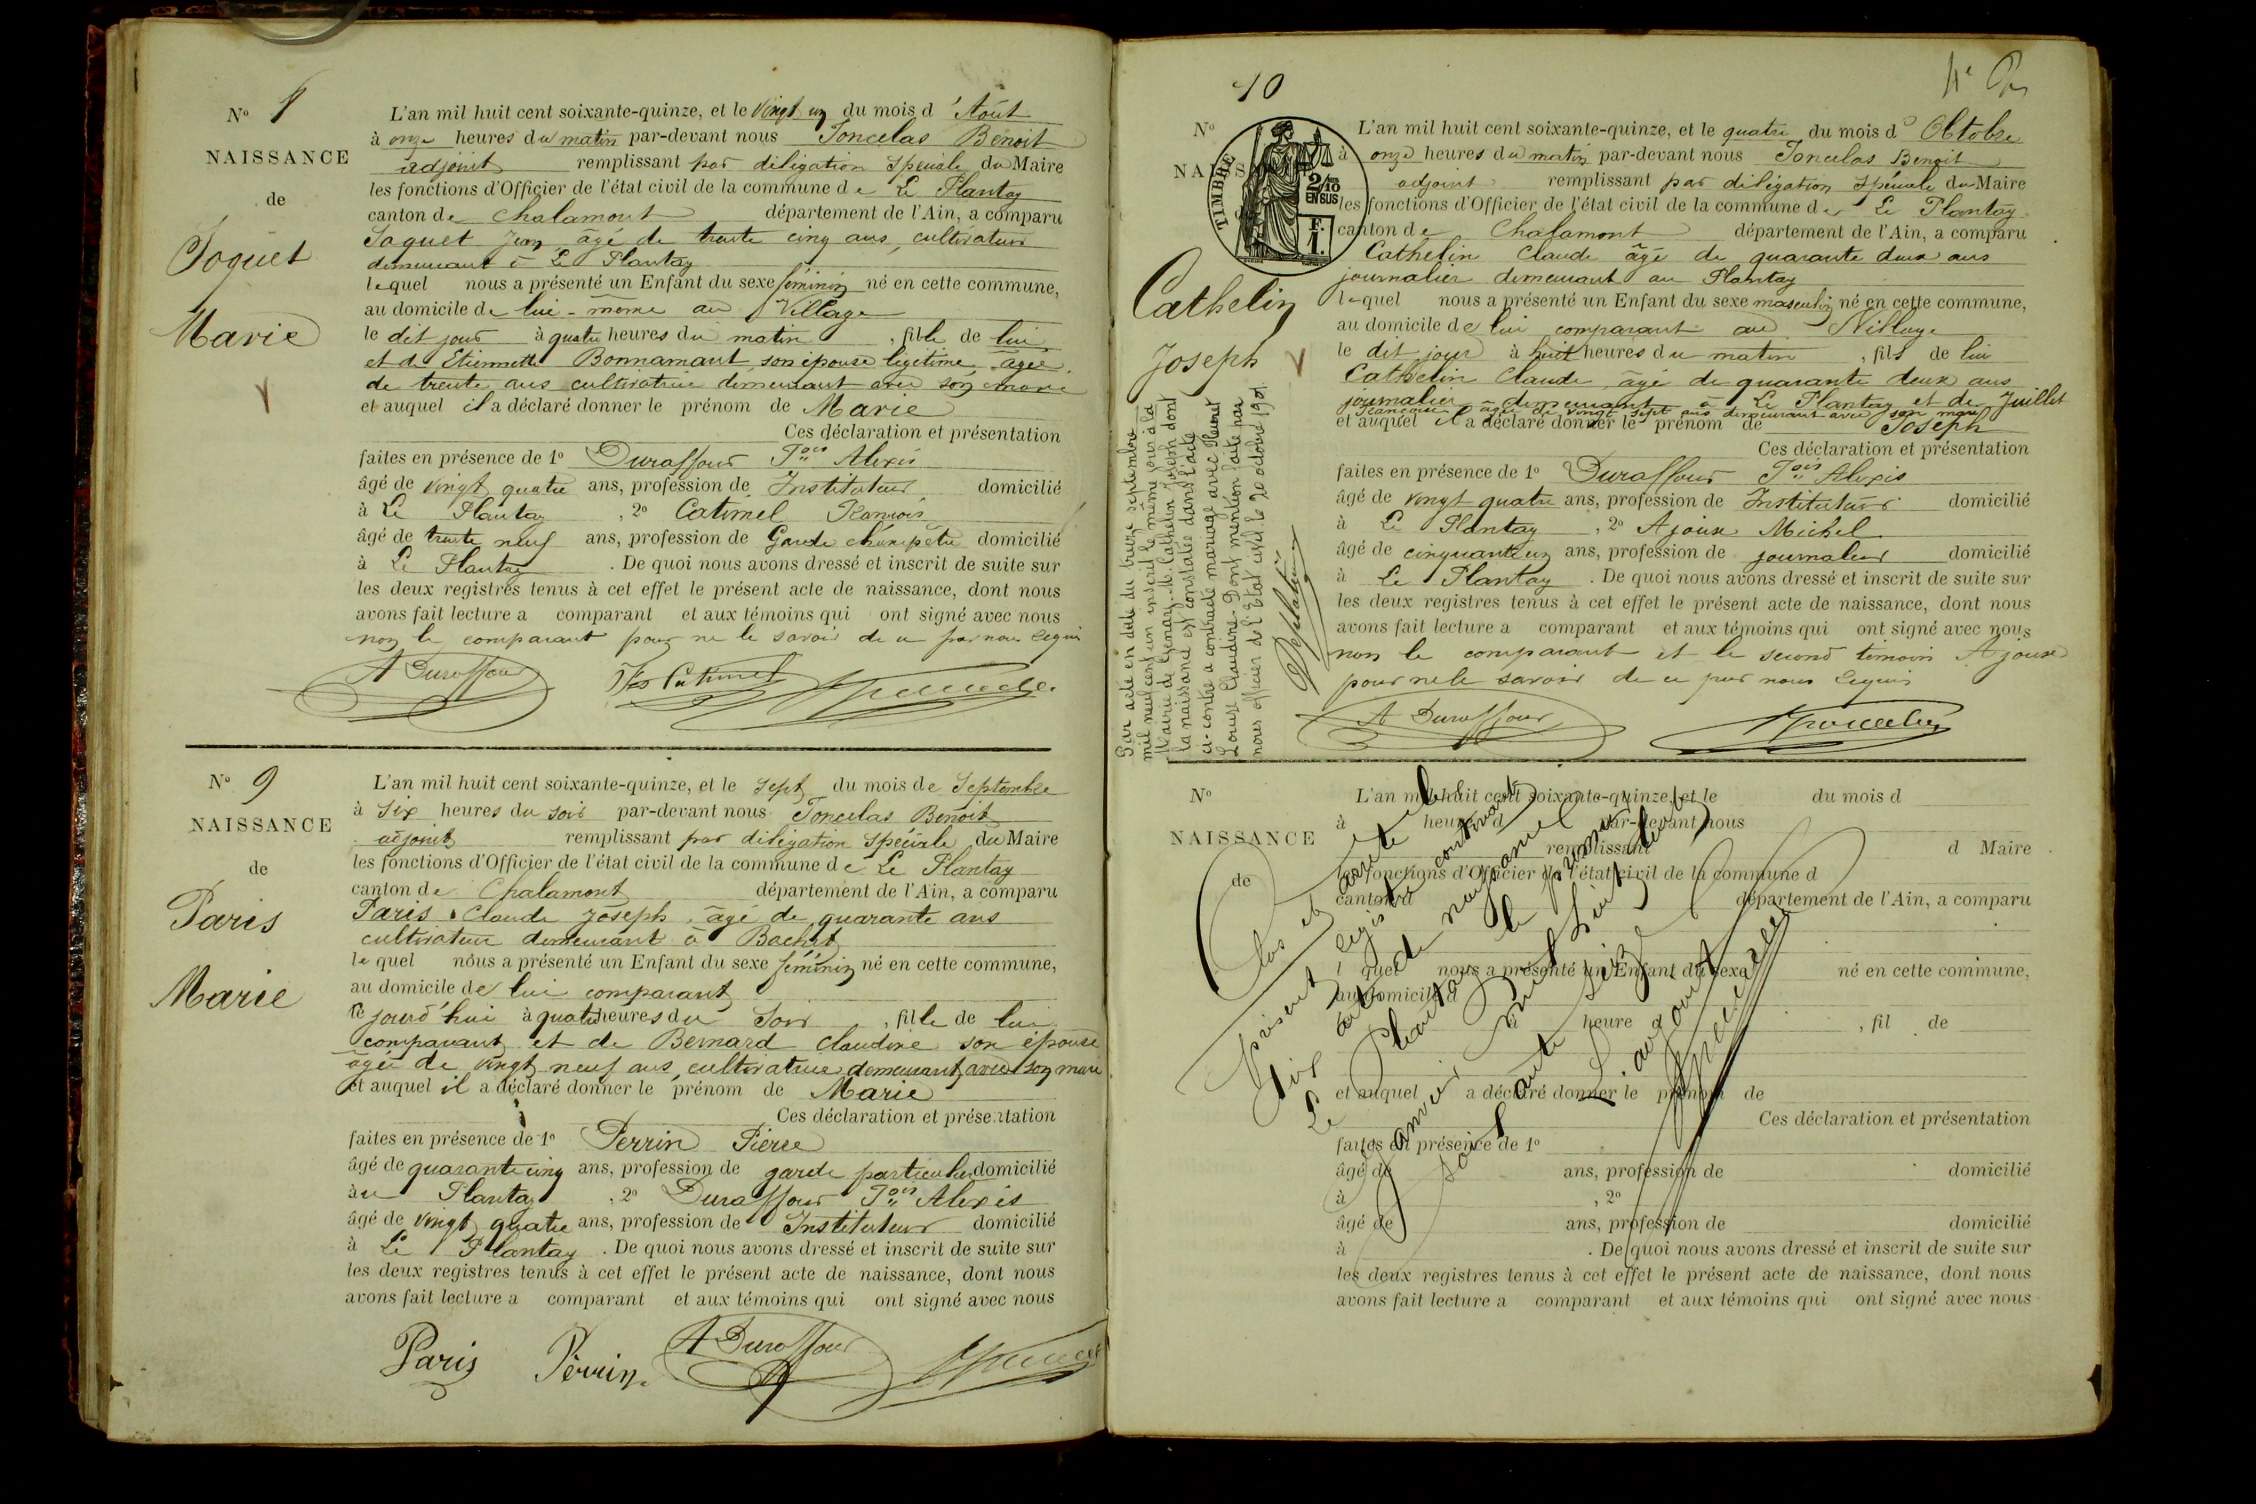 N° 8
NAISSANCE
de
Joguet
Marie
L'an mil huit cent soixante-quinze, et le vingt un du mois d'Août
à onze heures du matin par-devant nous Joncelas Benoit
adjoint remplissant par déligation spéciale du Maire
les fonctions d'Officier de l'état civil de la commune de Le Plantay
canton de Chalamont département de l'Ain, a comparu
Jaquet Jean âgé de trente cinq ans, cultivateur
demeurant à Le Plantay
lequel nous a présenté un Enfant du sexe féminin né en cette commune,
au domicile de lui-même au Village
le dit jour à quatre heures du matin, fille de lui
et de Etiennette Bonnamant, son épouse légitime, âgée
de trente ans cultivatrice demeurant avec son mari
et auquel il a déclaré donner le prénom de Marie
Ces déclaration et présentation
faites en présence de 1° Duraffour Fois Alexis
âgé de vingt quatre ans, profession de Instituteur domicilié
à Le Plantay, 2° Catimel François
âgé de trente neuf ans, profession de Garde champêtre domicilié
à Le Plantay. De quoi nous avons dressé et inscrit de suite sur
les deux registres tenus à cet effet le présent acte de naissance, dont nous
avons fait lecture a comparant et aux témoins qui ont signé avec nous
non le comparant pour ne le savoir de ce par nous requis
A Duraffour Catimel
N° 9
NAISSANCE
de
Paris
Marie
L'an mil huit cent soixante-quinze, et le sept du mois de Septembre
à six heures du soir par-devant nous Joncelas Benoit
adjoint remplissant par déligation spéciale du Maire
les fonctions d'Officier de l'état civil de la commune de Le Plantay
canton de Chalamont département de l'Ain, a comparu
Paris Claude Joseph, âgé de quarante ans
cultivateur demeurant à
lequel nous a présenté un Enfant du sexe féminin né en cette commune,
au domicile de lui comparant
le jourd'hui à quatre heures du soir, fille de lui
comparant et de Bernard Claudine son épouse
âgée de vingt neuf ans, cultivatrice demeurant avec son mari
et auquel il a déclaré donner le prénom de Marie
Ces déclaration et présentation
faites en présence de 1° Perrin Pierre
âgé de quarante cinq ans, profession de garde particulier domicilié
au Plantay, 2° Duraffour Fois Alexis
âgé de vingt quatre ans, profession de Instituteur domicilié
à Le Plantay. De quoi nous avons dressé et inscrit de suite sur
les deux registres tenus à cet effet le présent acte de naissance, dont nous
avons fait lecture a comparant et aux témoins qui ont signé avec nous
Paris Perrin A Duraffour
10
N°
NAISSANCE
TIMBRE
2/10 EN SUS
F. 1.
Cathelin
Joseph
L'an mil huit cent soixante-quinze, et le quatre du mois d'Obtobre
à onze heures du matin par-devant nous Joncelas Benoit
adjoint remplissant par déligation spéciale du Maire
les fonctions d'Officier de l'état civil de la commune de Le Plantay
canton de Chalamont département de l'Ain, a comparu
Cathelin Claude âgé de quarante deux ans
journalier demeurant au Plantay
lequel nous a présenté un Enfant du sexe masculin né en cette commune,
au domicile de lui comparant au Village
le dit jour à huit heures du matin, fils de lui
Cathelin Claude, âgé de quarante deux ans
journalier demeurant à Le Plantay et de Juillet
Françoise âgée de vingt sept ans demeurant avec son mari
et auquel il a déclaré donner le prénom de Joseph
Ces déclaration et présentation
faites en présence de 1° Duraffour Fois Alexis
âgé de vingt quatre ans, profession de Instituteur domicilié
à Le Plantay, 2° Ajoux Michel
âgé de cinquante un ans, profession de journalier domicilié
à Le Plantay. De quoi nous avons dressé et inscrit de suite sur
les deux registres tenus à cet effet le présent acte de naissance, dont nous
avons fait lecture a comparant et aux témoins qui ont signé avec nous
non le comparant et le second témoin Ajoux
pour ne le savoir de ce par nous requis
A Duraffour
Par acte en date du treize septembre
mil neuf cent un inscrit le même jour à la
Mairie de M. Cathelin Joseph dont
la naissance est constatée dans l'acte
ci-contre a contracté mariage avec
Louise Claudine. Dont mention faite par
nous officier de l'Etat civil le 20 octobre 1901
N°
NAISSANCE
de
L'an mil huit cent soixante-quinze, et le du mois d
à heures d par-devant nous
remplissant d Maire
les fonctions d'Officier de l'état civil de la commune d
canton d département de l'Ain, a comparu
quel nous a présenté un Enfant du sexe né en cette commune,
au domicile d
à heure , fil de
et auquel a déclaré donner le prénom de
Ces déclaration et présentation
faites en présence de 1°
âgé de ans, profession de domicilié
à , 2°
âgé de ans, profession de domicilié
à . De quoi nous avons dressé et inscrit de suite sur
les deux registres tenus à cet effet le présent acte de naissance, dont nous
avons fait lecture a comparant et aux témoins qui ont signé avec nous
Clos et arrêté le
présent registre contenant
dix actes de naissance
Le Plantay le premier
janvier mil huit cent
soixante seize
L'adjoint